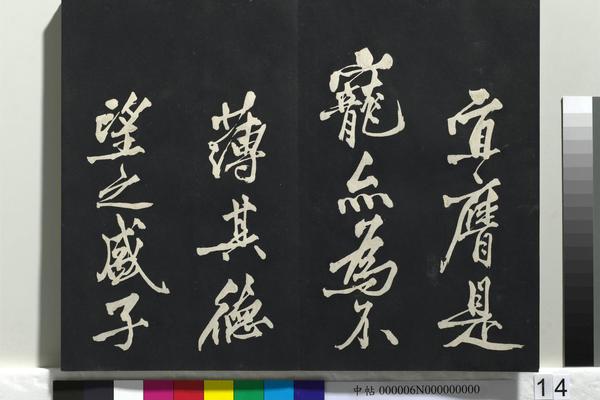 宜膺是
寵亦為不
薄其德
望之盛子
中帖 000006N000000000
14